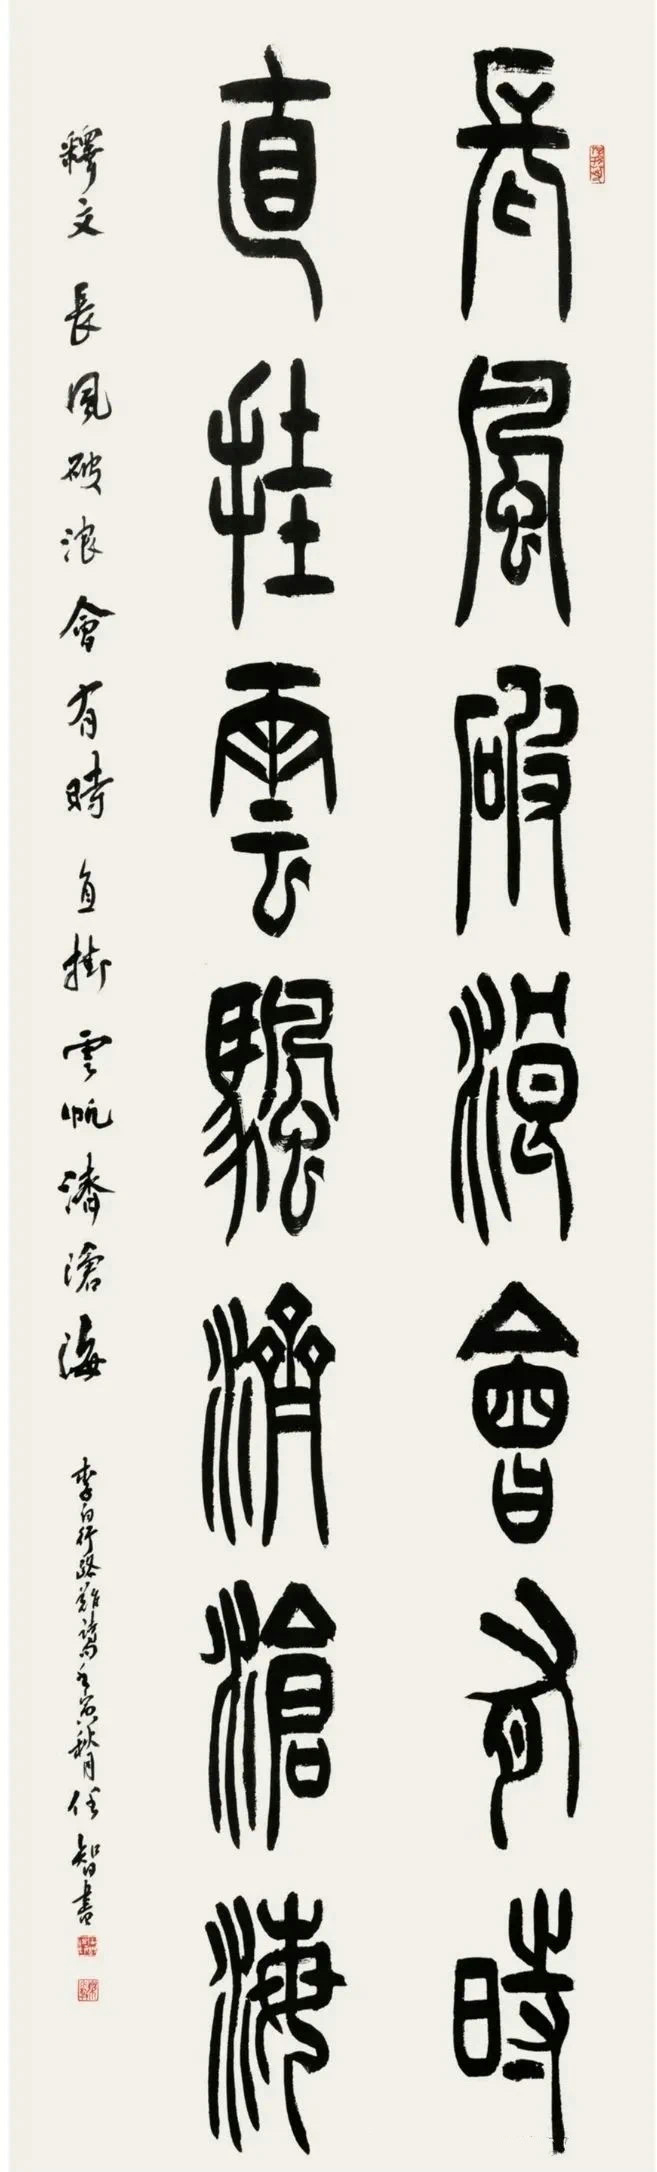 長風破浪會有時
直挂雲颿濟滄海
釋文 長風破浪會有時 直掛雲帆濟滄海 李白行路難詩句壬寅秋月任智書